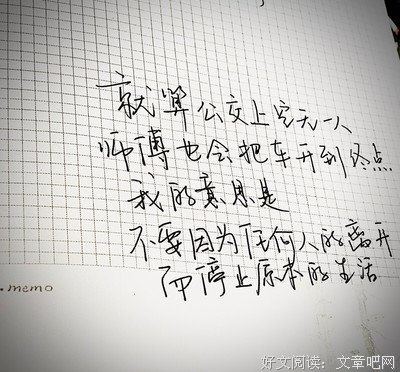 就算公交上空无一人
师傅也会把车开到终点
我的意思是
不要因为任何人的离开
而停止原本的生活
.memo
好文阅读：文章吧网